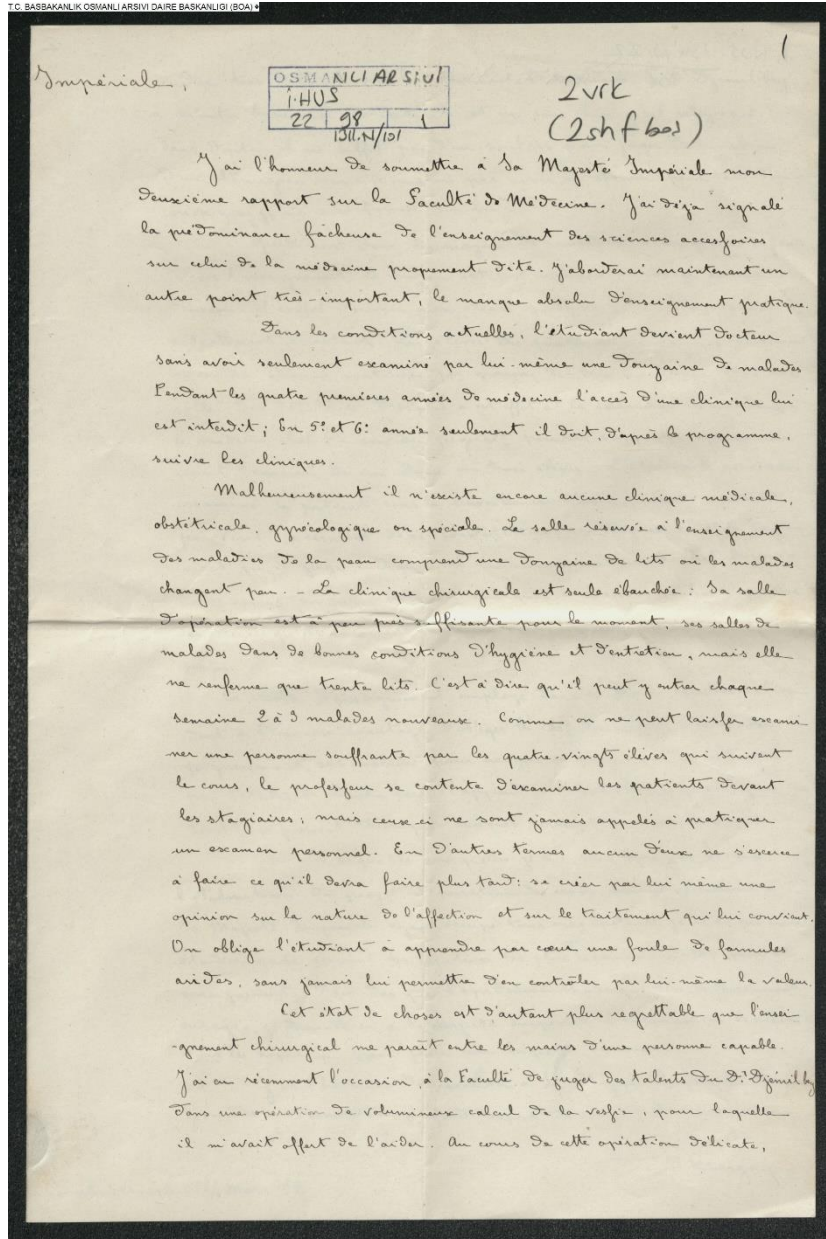 T.C. BASBAKANLIK OSMANLI ARSIVI DAIRE BASKANLIGI (BOA)
1
Impériale,
OSMANLI ARSİVİ
İ.HUS
22 98 1
1311.N/101
2 vrk
(2 shf boş)
J'ai l'honneur de soumettre à Sa Majesté Impériale mon
deuxième rapport sur la Faculté de Médecine. J'ai déja signalé
la prédominance fâcheuse de l'enseignement des sciences accessoires
sur celui de la médecine proprement dite. J'aborderai maintenant un
autre point très-important, le manque absolu d'enseignement pratique.
Dans les conditions actuelles, l'étudiant devient docteur
sans avoir seulement examiné par lui-même une douzaine de malades
Pendant les quatre premières années de médecine l'accès d'une clinique lui
est interdit; En 5e et 6e année seulement il doit, d'après le programme,
suivre les cliniques.
Malheureusement il n'existe encore aucune clinique médicale,
obstétricale, gynécologique ou spéciale. La salle réservée à l'enseignement
des maladies de la peau comprend une douzaine de lits où les malades
changent peu. - La clinique chirurgicale est seule ébauchée: Sa salle
d'opération est à peu près suffisante pour le moment, ses salles de
malades dans de bonnes conditions d'hygiène et d'entretien, mais elle
ne renferme que trente lits. C'est à dire qu'il peut y entrer chaque
semaine 2 à 3 malades nouveaux. Comme on ne peut laisser exami
ner une personne souffrante par les quatre-vingts élèves qui suivent
le cours, le professeur se contente d'examiner les patients devant
les stagiaires; mais ceux-ci ne sont jamais appelés à pratiquer
un examen personnel. En d'autres termes aucun d'eux ne s'exerce
à faire ce qu'il devra faire plus tard: se créer par lui même une
opinion sur la nature de l'affection et sur le traitement qui lui convient.
On oblige l'étudiant à apprendre par cœur une foule de formules
arides, sans jamais lui permettre d'en contrôler par lui-même la valeur.
Cet état de choses est d'autant plus regrettable que l'ensei
-gnement chirurgical me paraît entre les mains d'une personne capable.
J'ai eu récemment l'occasion, à la Faculté de juger des talents du Dr Djémil bey
dans une opération de volumineux calcul de la vessie, pour laquelle
il m'avait offert de l'aider. Au cours de cette opération délicate,